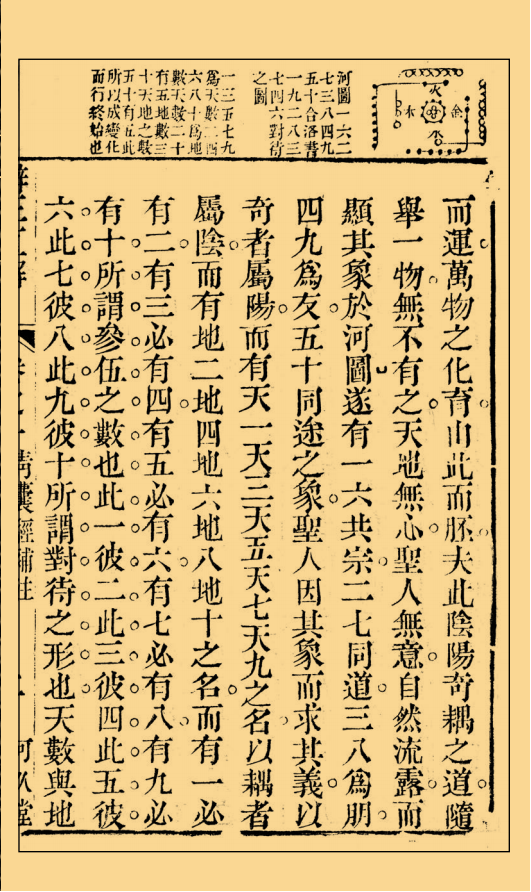 火
金
木
水
河圖一六二
七三八四九
五十合洛書
一九二八三
七四六對待
之圖
一三五七九
爲天數二四
六八十爲地
數天數二十
有五地數三
十天地之數
五十有五此
所以成變化
而行終始也
而運萬物之化育由此而胚夫此陰陽奇耦之道隨
舉一物無不有之天地無心聖人無意自然流露而
顯其象於河圖遂有一六共宗二七同道三八爲朋
四九爲友五十同途之象聖人因其象而求其義以
奇者屬陽而有天一天三天五天七天九之名以耦者
屬陰而有地二地四地六地八地十之名而有一必
有二有三必有四有五必有六有七必有八有九必
有十所謂參伍之數也此一彼二此三彼四此五彼
六此七彼八此九彼十所謂對待之形也天數與地
青囊經補註